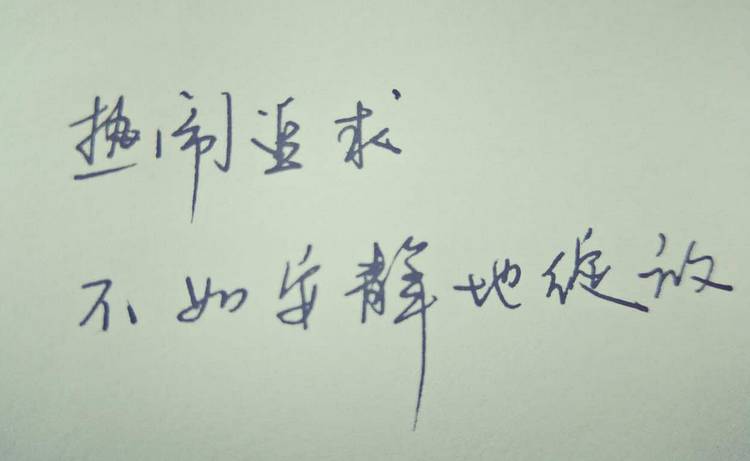 热闹追求
不如安静地绽放